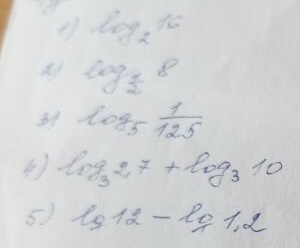 1) log₂ 16
2) log_{1/2} 8
3) log₅ 1/125
4) log₃ 2,7 + log₃ 10
5.) lg 12 − lg 1,2